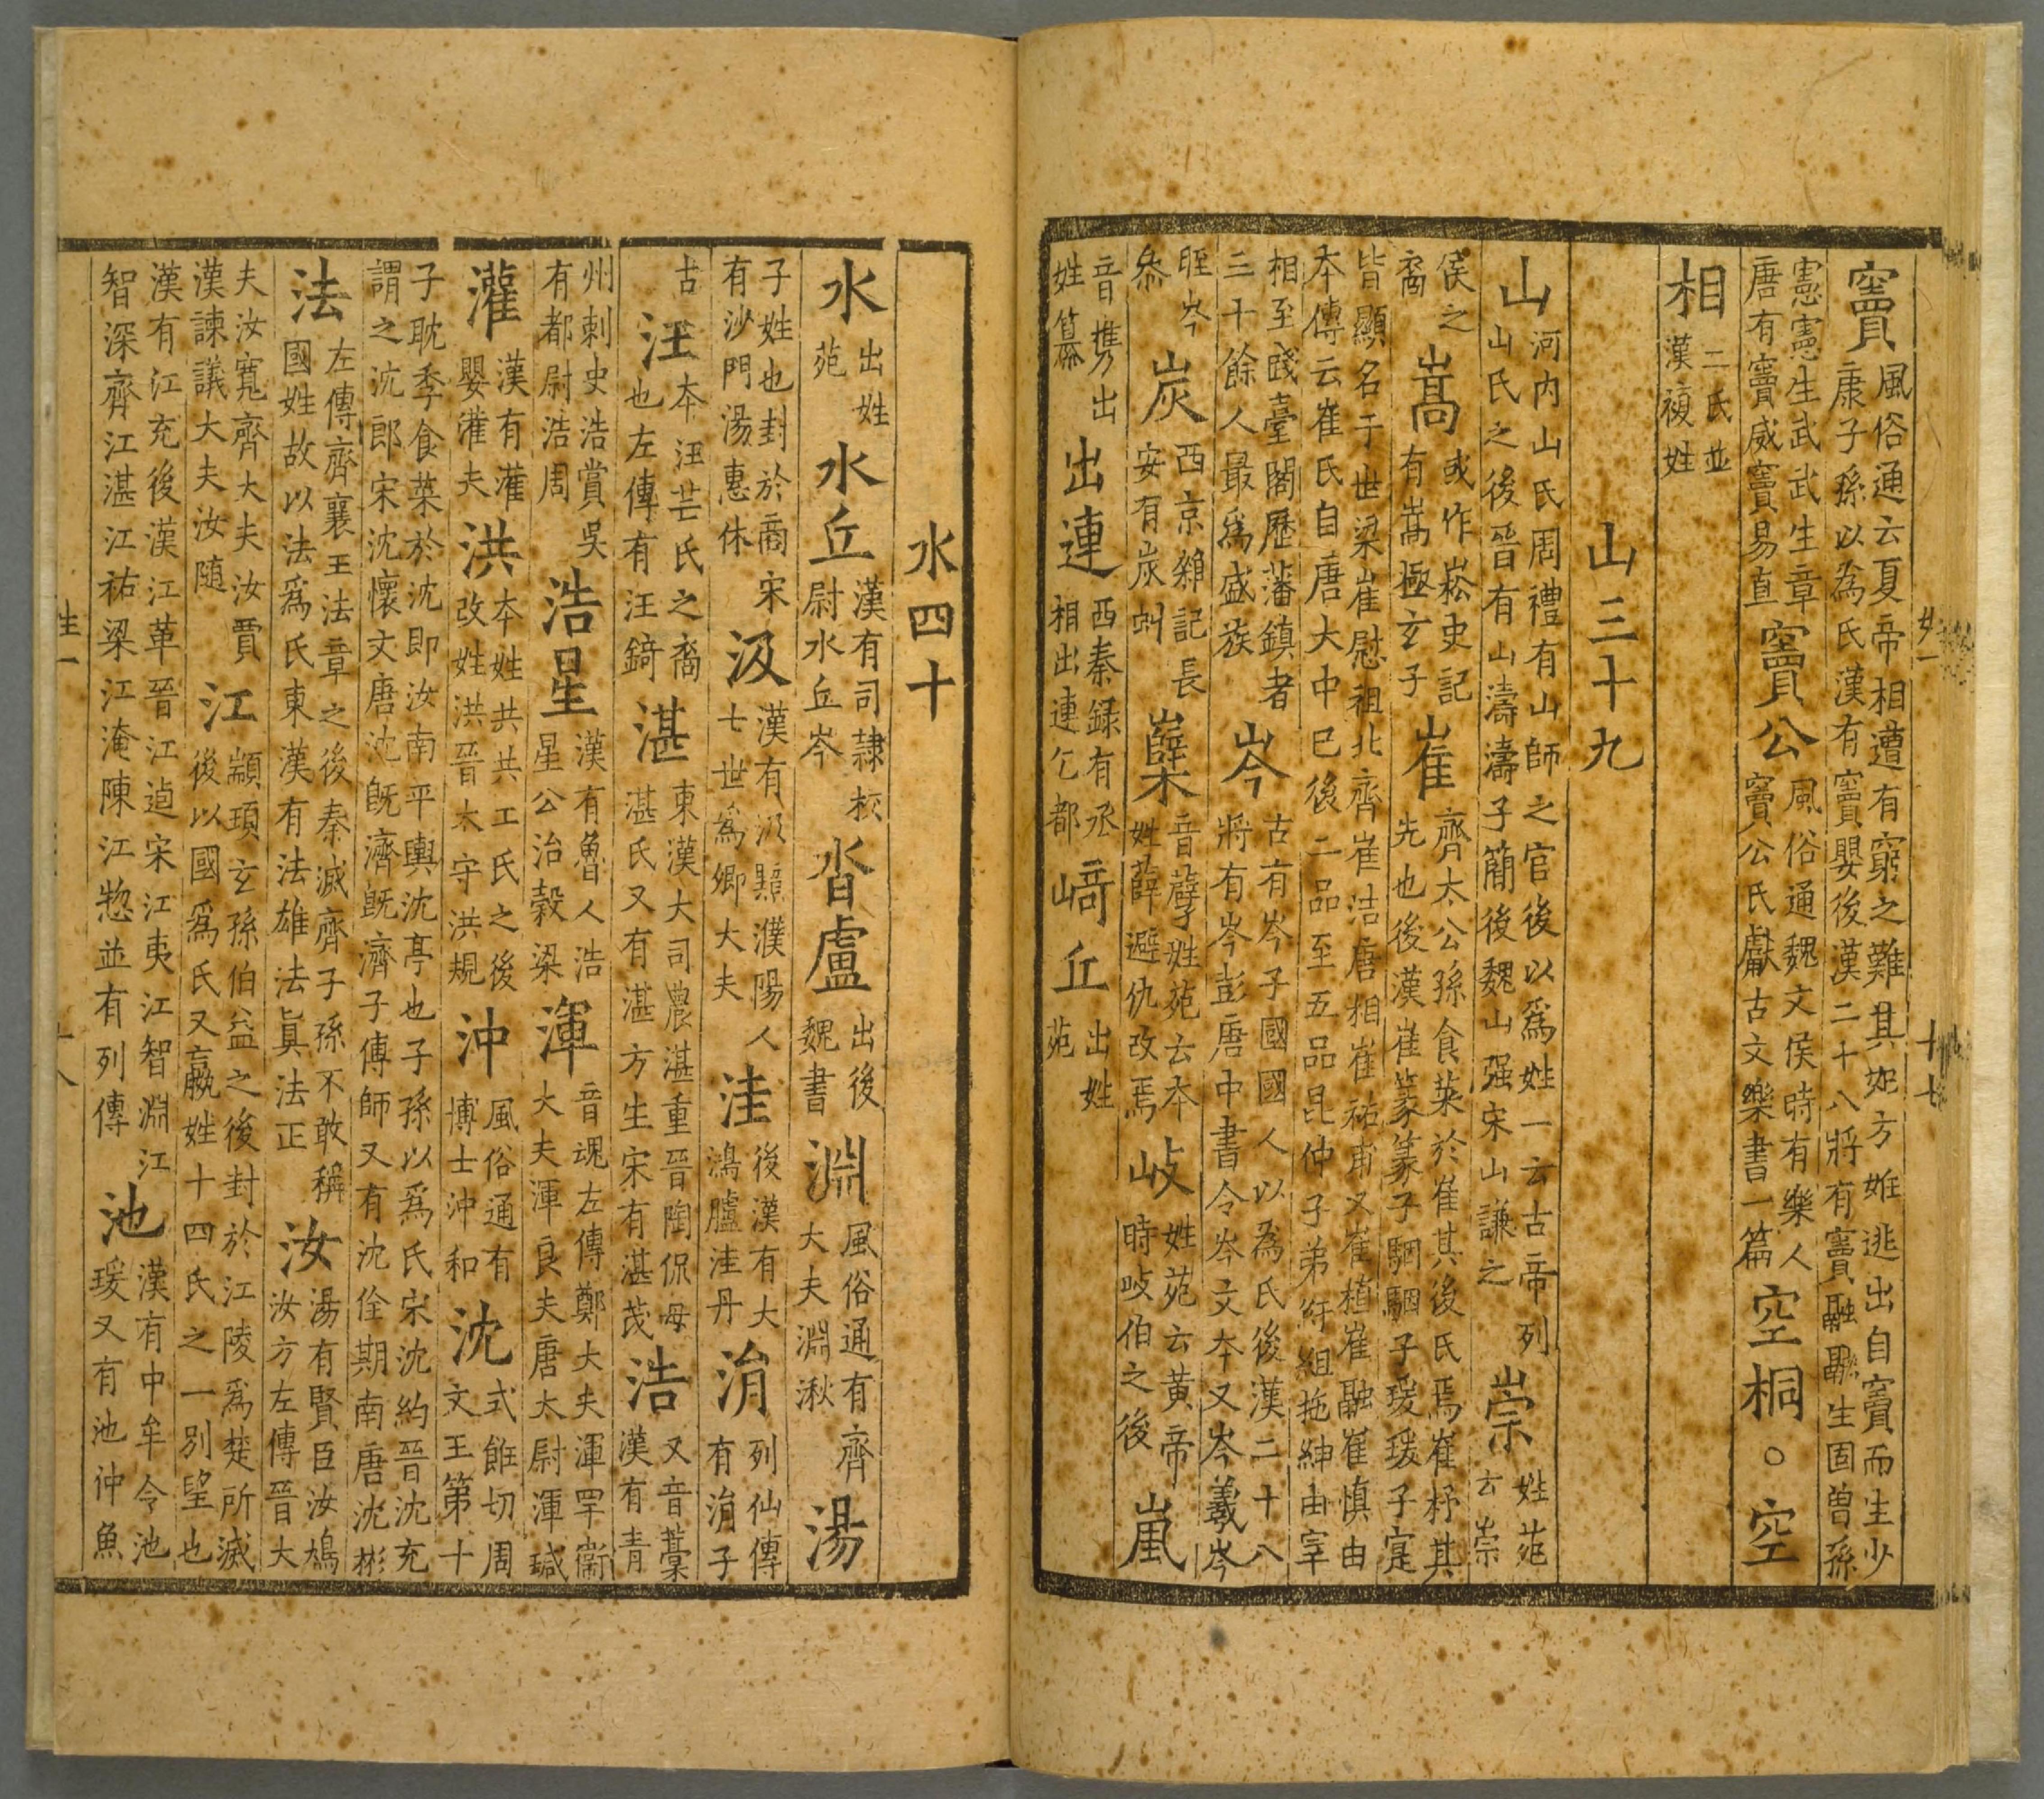 竇風俗通云夏帝相遭有窮之難其妃方娠逃出自竇而生少康子孫以為氏漢有竇嬰後漢二十八將有竇融融生固曾孫
憲憲生武武生章唐有竇威竇易直竇公風俗通魏文侯時有樂人竇公氏獻古文樂書一篇空桐○空
相二氏並漢複姓
山三十九
山河内山氏周禮有山師之官後以爲姓一云古帝列山氏之後晉有山濤濤子簡後魏山强宋山謙之崇姓苑云崇
侯之裔嵩或作崧史記有嵩極玄子崔齊太公孫食菜於崔其後氏焉崔杼其先也後漢崔篆篆子駰駰子瑗瑗子寔
皆顯名于世梁崔慰祖北齊崔㓗唐相崔祐甫又崔植崔融崔慎由本傳云崔氏自唐大中已後二品至五品昆仲子弟紆組拖紳由宰
相至踐臺閣歷藩鎮者三十餘人最爲盛族岑古有岑子國國人以為氏後漢二十八將有岑彭唐中書令岑文本又岑羲岑
眰岑叅炭西京雜記長安有炭虯櫱音孽姓苑云本姓薛避仇改焉岐姓苑云黃帝時岐伯之後嵐
音擕出姓纂出連西秦録有丞相出連乞都﨑丘出姓苑
十七
水四十
水出姓苑水丘漢有司隷校尉水丘岑沓盧出後魏書淵風俗通有齊大夫淵湫湯
子姓也封於商宋有沙門湯惠休汲漢有汲黯濮陽人七世爲卿大夫洼後漢有大鴻臚洼丹涓列仙傳有涓子
古本汪本汪芒氏之裔也左傳有汪錡湛東漢大司農湛重晉陶侃母湛氏又有湛方生宋有湛茂浩又音藁漢有青
州刺史浩賞吳有都尉浩周浩星漢有魯人浩星公治穀梁渾音魂左傳鄭大夫渾罕衞大夫渾良夫唐太尉渾瑊
灌漢有灌嬰灌夫洪本姓共共工氏之後改姓洪晉太守洪規沖風俗通有博士沖和沈式飪切周文王第十
子耽季食菜於沈即汝南平輿沈亭也子孫以爲氏宋沈約晉沈充謂之沈郎宋沈懷文唐沈旣濟旣濟子傳師又有沈佺期南唐沈彬
法左傳齊襄王法章之後秦滅齊子孫不敢稱國姓故以法爲氏東漢有法雄法眞法正汝湯有賢臣汝鳩汝方左傳晉大
夫汝寬齊大夫汝賈漢諫議大夫汝随江顓頊玄孫伯益之後封於江陵爲楚所滅後以國爲氏又嬴姓十四氏之一别望也
漢有江充後漢江革晉江逌宋江夷江智淵江智深齊江湛江祐梁江淹陳江揔並有列傳池漢有中牟令池瑗又有池仲魚